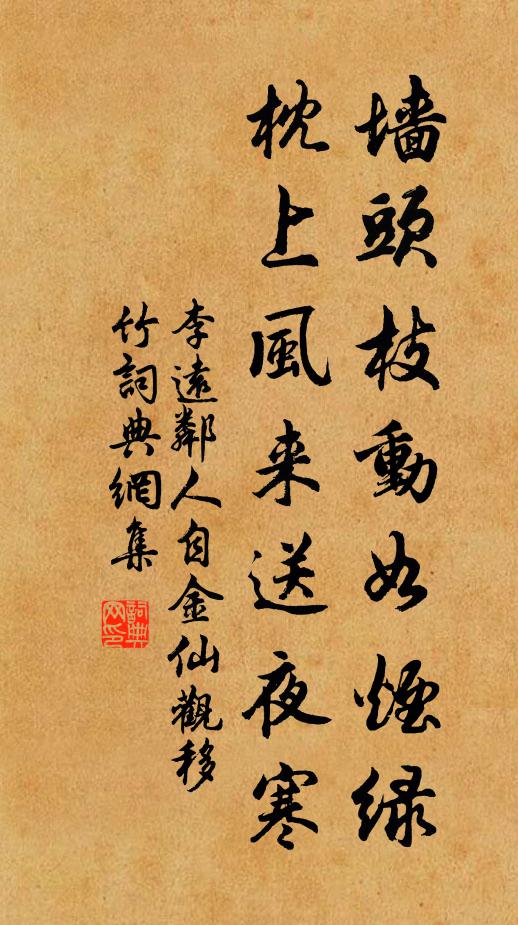 墙頭枝動如煙绿
枕上風来送夜寒
李遠鄰人自金仙觀移
竹詞典網集
詞典
网印